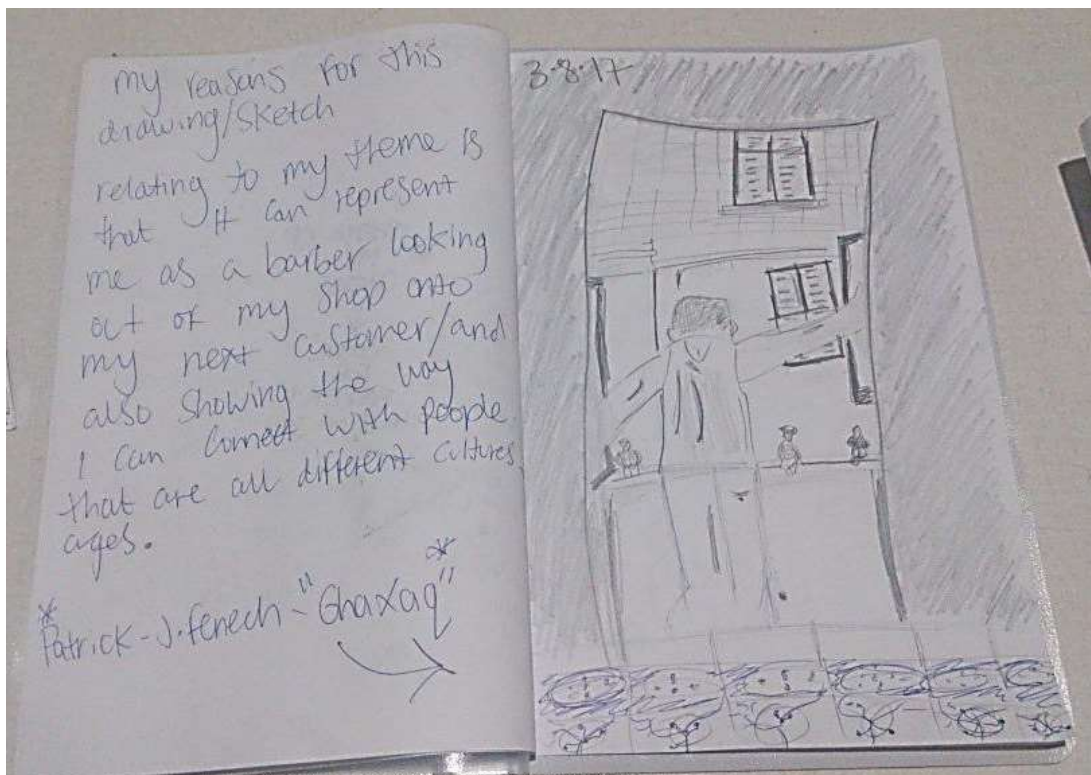 my reasons for this
drawing/sketch
relating to my theme is
that It can represent
me as a barber looking
out of my shop onto
my next customer/and
also showing the way
I can connect with people
that are all different cultures
ages.
*
*
Patrick-J.fenech-"Ghaxaq"
3-8-17